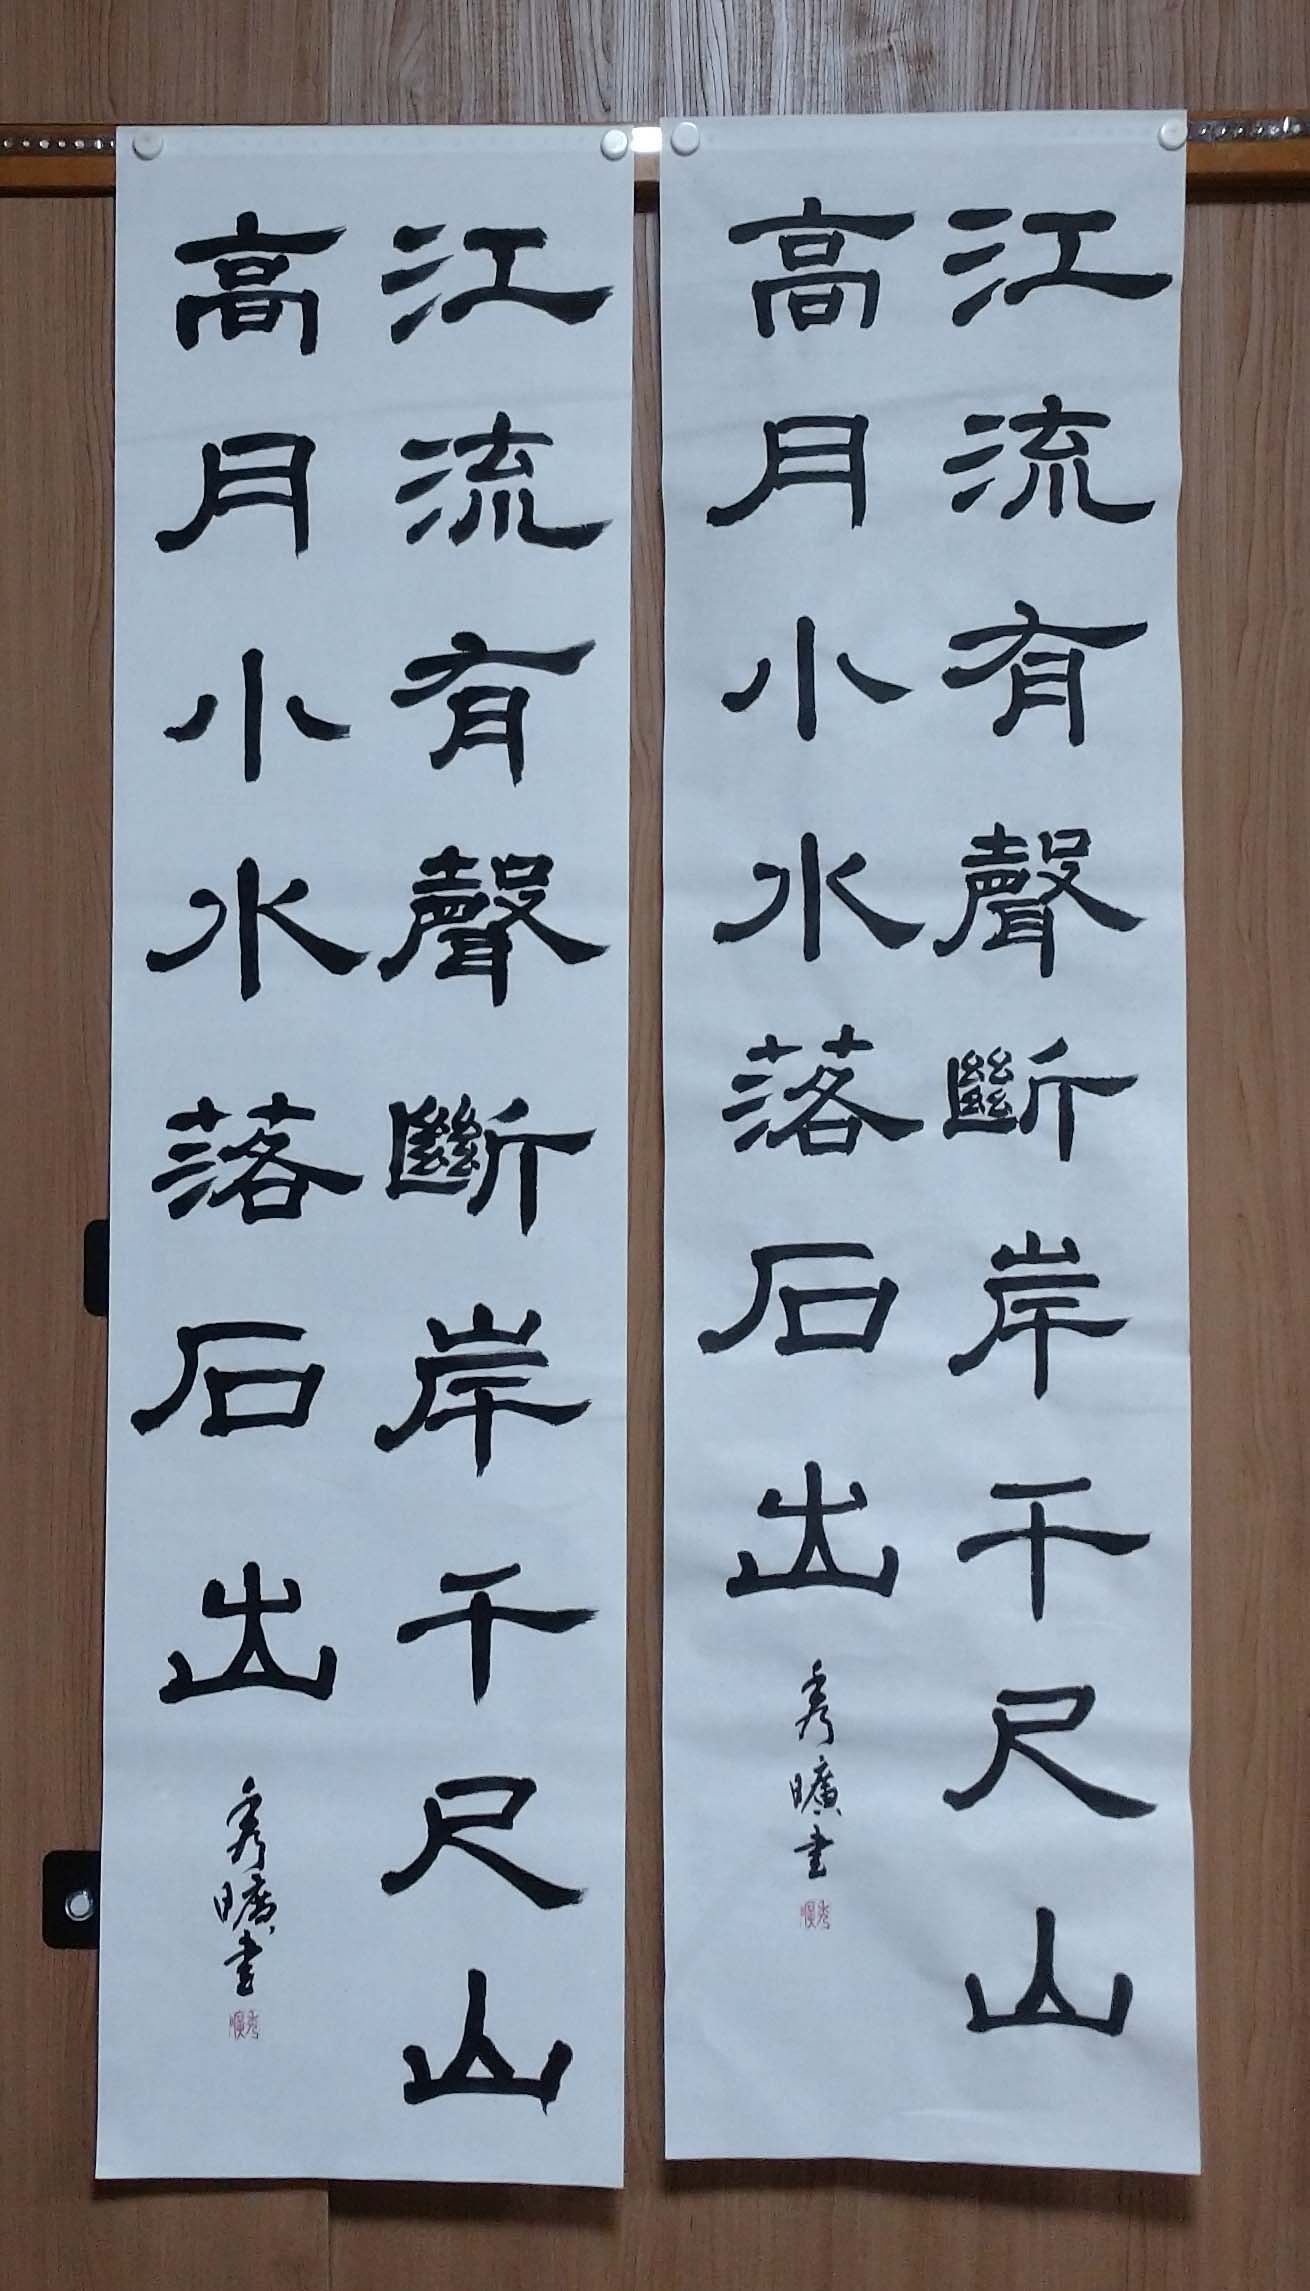 江流有聲斷岸千尺山
高月小水落石出
秀曠書
秀曠
江流有聲斷岸千尺山
高月小水落石出
秀曠書
秀曠